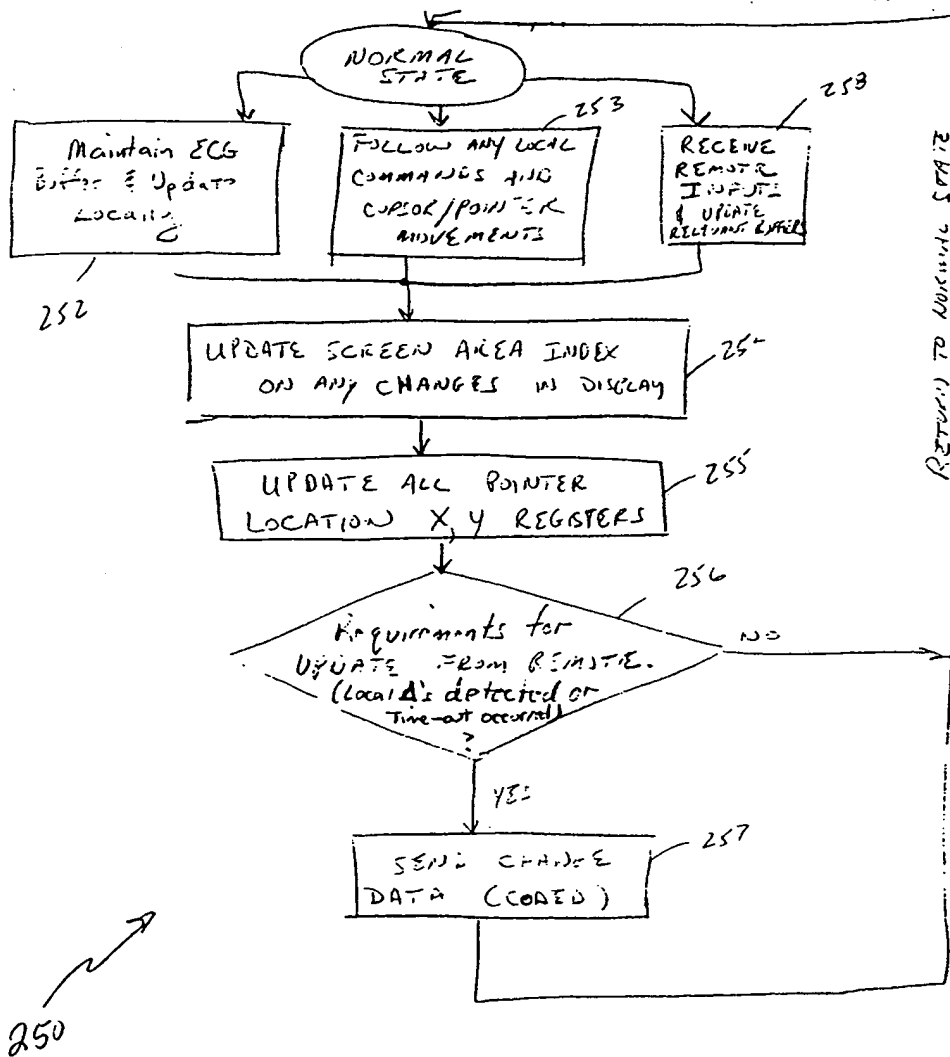 NORMAL
STATE
Maintain ECG
Buffer & Update
Locally
252
253
FOLLOW ANY LOCAL
COMMANDS AND
CURSOR/POINTER
MOVEMENTS
258
RECEIVE
REMOTE
INPUTS
& UPDATE
RELEVANT BUFFERS
UPDATE SCREEN AREA INDEX
ON ANY CHANGES IN DISPLAY
UPDATE ALL POINTER
LOCATION X, Y REGISTERS
255
256
Requirements for
UPDATE FROM REMOTE.
(Local Δ's detected or
Time-out occurred)
?
NO
YES
SEND CHANGE
DATA (CODED)
257
RETURN TO NORMAL STATE
250